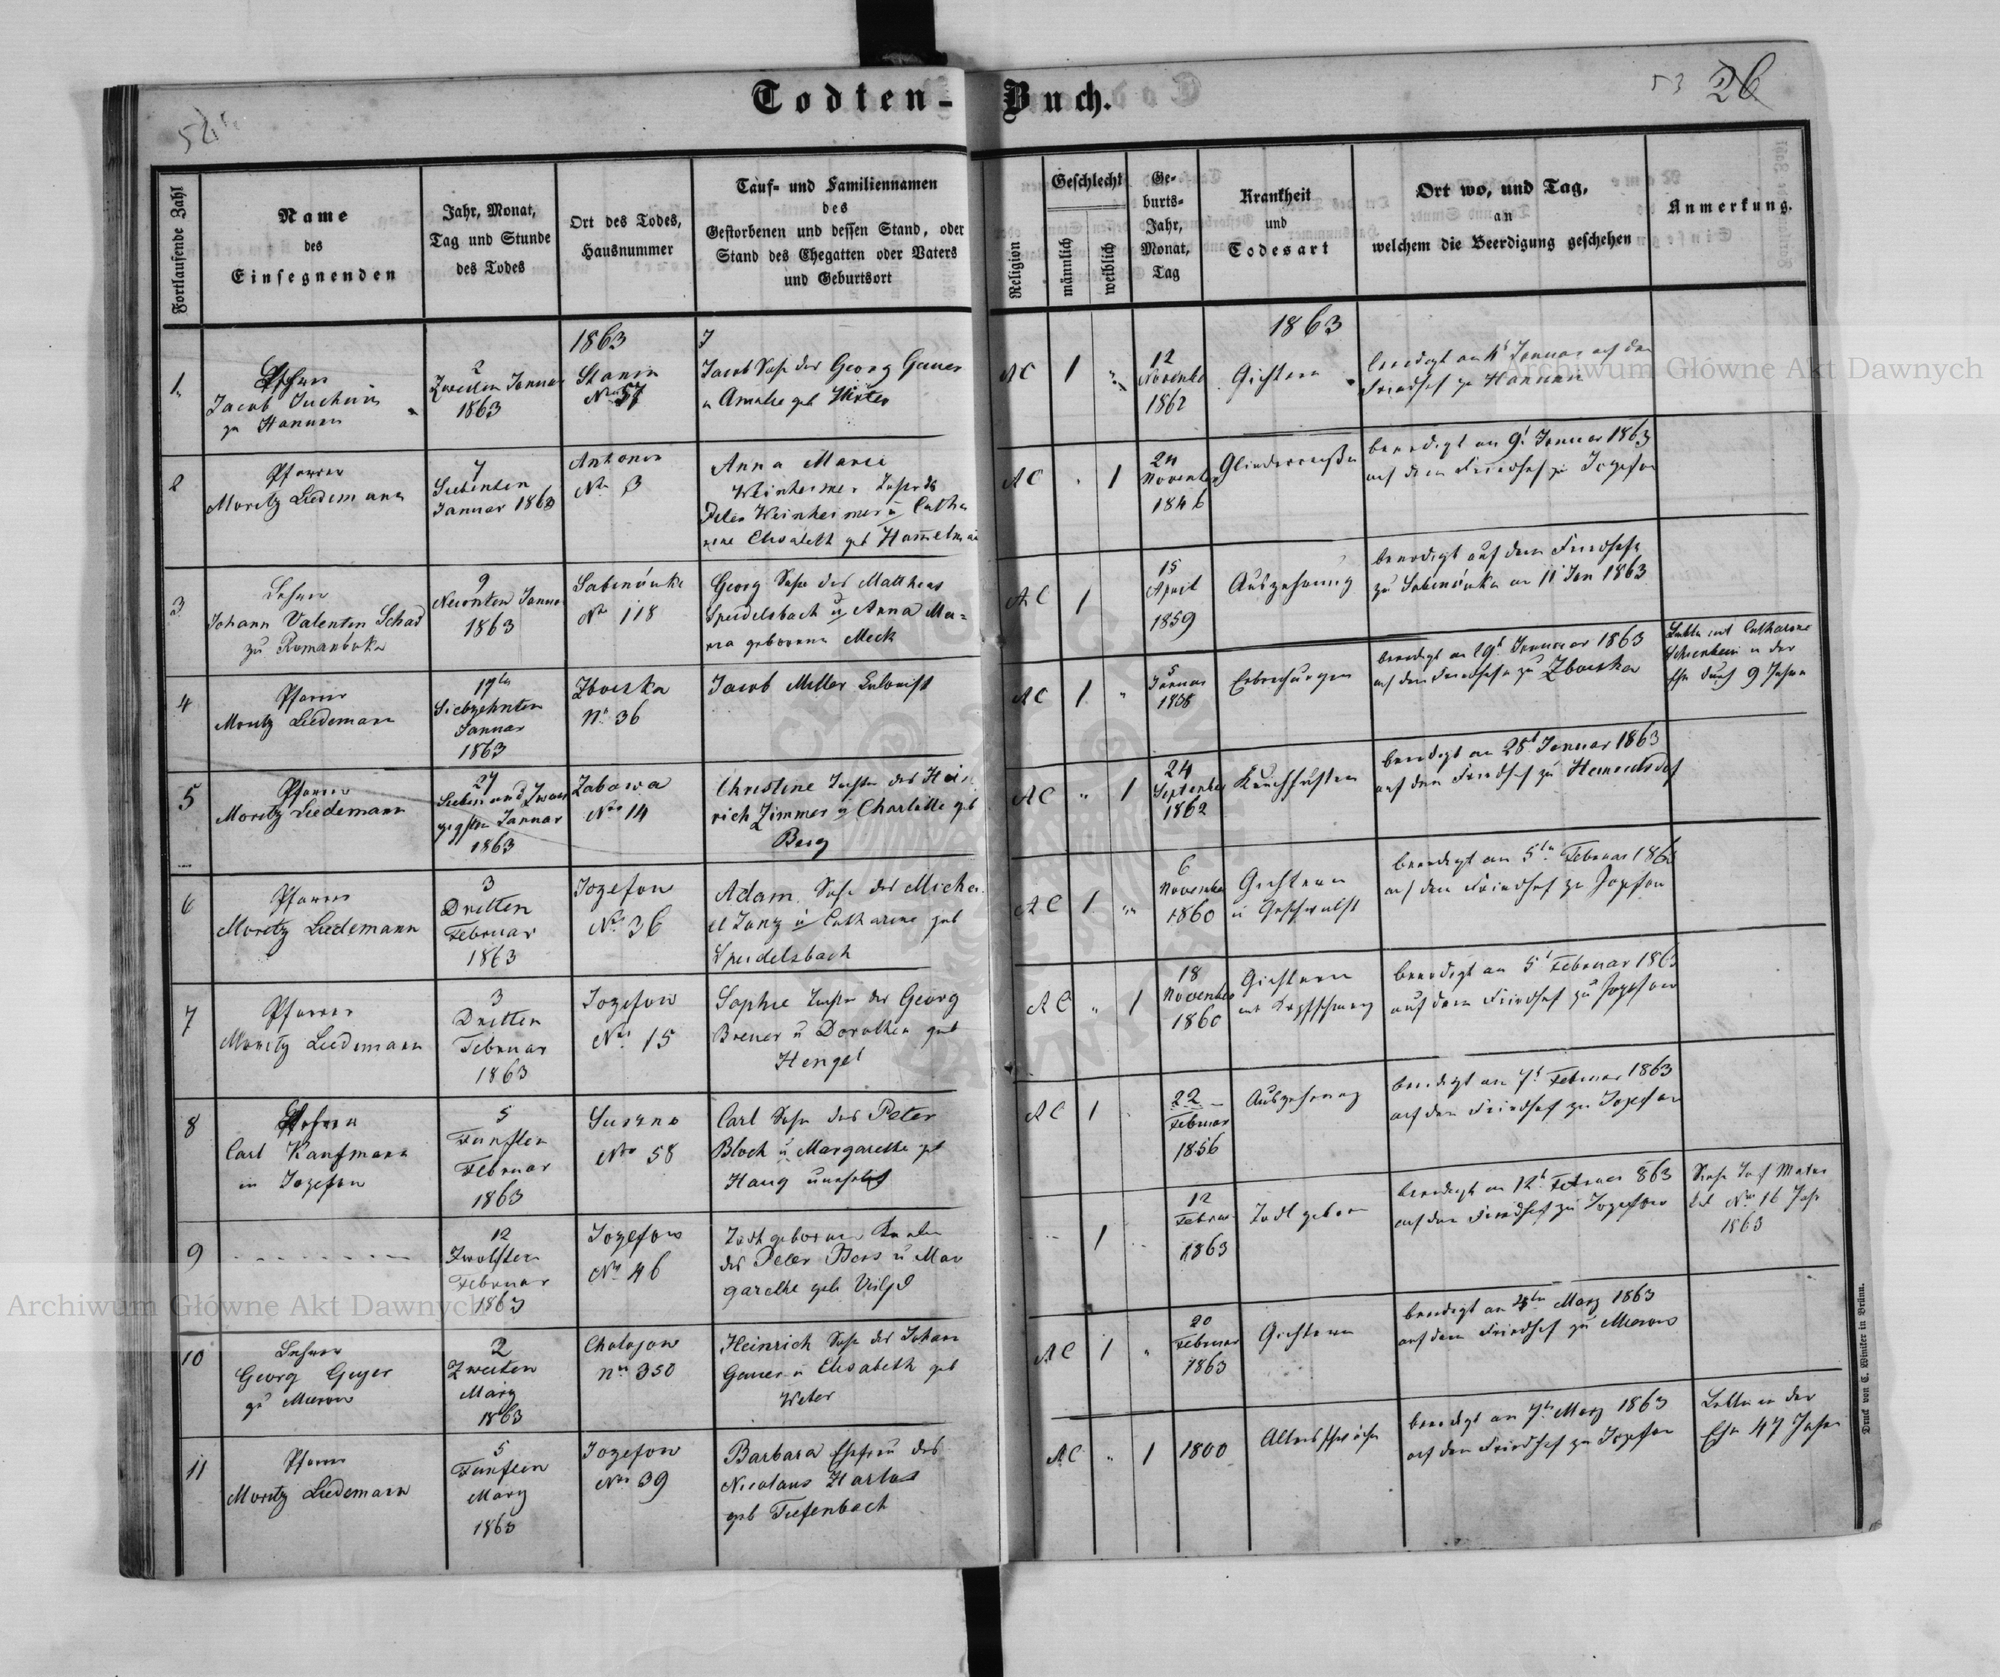 Todten-Buch.
53 26
Fortlaufende Zahl
Name
des
Einsegnenden
Jahr, Monat,
Tag und Stunde
des Todes
Ort des Todes,
Hausnummer
Tauf- und Familiennamen
des
Gestorbenen und dessen Stand, oder
Stand des Ehegatten oder Vaters
und Geburtsort
Religion
Geschlecht
männlich
weiblich
Ge-
burts-
Jahr,
Monat,
Tag
Krankheit
und
Todesart
Ort wo, und Tag,
an
welchem die Beerdigung geschehen
Anmerkung.
1863
1863
1
Jacob
zu Hanunin
2
Zweiten Januar
1863
Stanin
Nro 57
Jacob Sohn des Georg Gauer
u Amalie geb
AC
1
12
November
1862
Gichtern
beerdigt am 4t Januar auf dem
Friedhof zu Hanunin
2
Pfarrer
Moritz Liedemann
7
Siebenten
Januar 1863
Antonin
No 3
Anna Marie
Weinheimer Tochter des
Peter Weinheimer u Catha
rine Elisabeth geb
AC
1
24
November
1846
beerdigt am 9t Januar 1863
auf dem Friedhof zu Jozefow
3
Lehrer
Johann Valentin Schad
zu Romanówka
9
Neunten Januar
1863
Sabinówka
No 118
Georg Sohn des Matthias
Speidelsbach u Anna Ma-
ria geborene Meck
AC
1
15
April
1859
Auszehrung
beerdigt auf dem Friedhofe
zu Sabinówka am 11t Jan 1863
4
Pfarrer
Moritz Liedemann
17ten
Siebzehnten
Januar
1863
Zboiska
No 36
Jacob Miller Colonist
AC
1
5
Januar
beerdigt am 19t Januar 1863
auf dem Friedhofe zu Zboiska
Lebte mit Catharine
in der
Ehe durch 9 Jahre
5
Pfarrer
Moritz Liedemann
27
Sieben und Zwan
zigsten Januar
1863
Zabawa
Nro 14
Christine Tochter des Hein
rich Zimmer u Charlotte geb
Berg
AC
1
24
September
1862
Keuchhusten
beerdigt am 28t Januar 1863
auf dem Friedhof zu Heinrichsdorf
6
Pfarrer
Moritz Liedemann
3
Dritten
Februar
1863
Jozefow
No 36
Adam Sohn des Micha
el Janz u Catharine geb
Speidelsbach
AC
1
6
November
1860
Gichtern
u Geschwulst
beerdigt am 5ten Februar 1863
auf dem Friedhof zu Jozefow
7
Pfarrer
Moritz Liedemann
3
Dritten
Februar
1863
Jozefow
Nro 15
Sophie Tochter des Georg
Brener u Dorothea geb
Hengel
AC
1
18
November
1860
Gichtern
mit Kopfschmerz
beerdigt am 5t Februar 1863
auf dem Friedhof zu Jozefow
8
Lehrer
Carl Kaufmann
in Jozefow
5
Fünften
Februar
1863
Suszno
Nro 58
Carl Sohn des Peter
Bloch u Margarethe geb
Haug
AC
1
22
Februar
1856
Auszehrung
beerdigt am 7t Februar 1863
auf dem Friedhof zu Jozefow
9
12
Zwölften
Februar
1863
Jozefow
Nro 46
Todtgeborener Knabe
des Peter Bors u Mar
garethe geb
1
12
Februar
1863
Todtgeboren
beerdigt am 12t Februar 863
auf dem Friedhof zu Jozefow
No 16
1863
10
Lehrer
Georg Geyer
zu Mierow
2
Zweiten
März
1863
Cholojow
No 350
Heinrich Sohn des Johann
Gauer u Elisabeth geb
Weber
AC
1
20
Februar
1863
Gichtern
beerdigt am 4ten März 1863
auf dem Friedhof zu Mierow
11
Pfarrer
Moritz Liedemann
5
Fünften
März
1863
Jozefow
Nro 39
Barbara Ehefrau des
Nicolaus Harlos
geb Tiefenbach
AC
1
1800
Altersschwäche
beerdigt am 7ten März 1863
auf dem Friedhof zu Jozefow
Lebte in der
Ehe 47 Jahre
Druck von C. Winiker in Brünn.
Archiwum Główne Akt Dawnych
Archiwum Główne Akt Dawnych